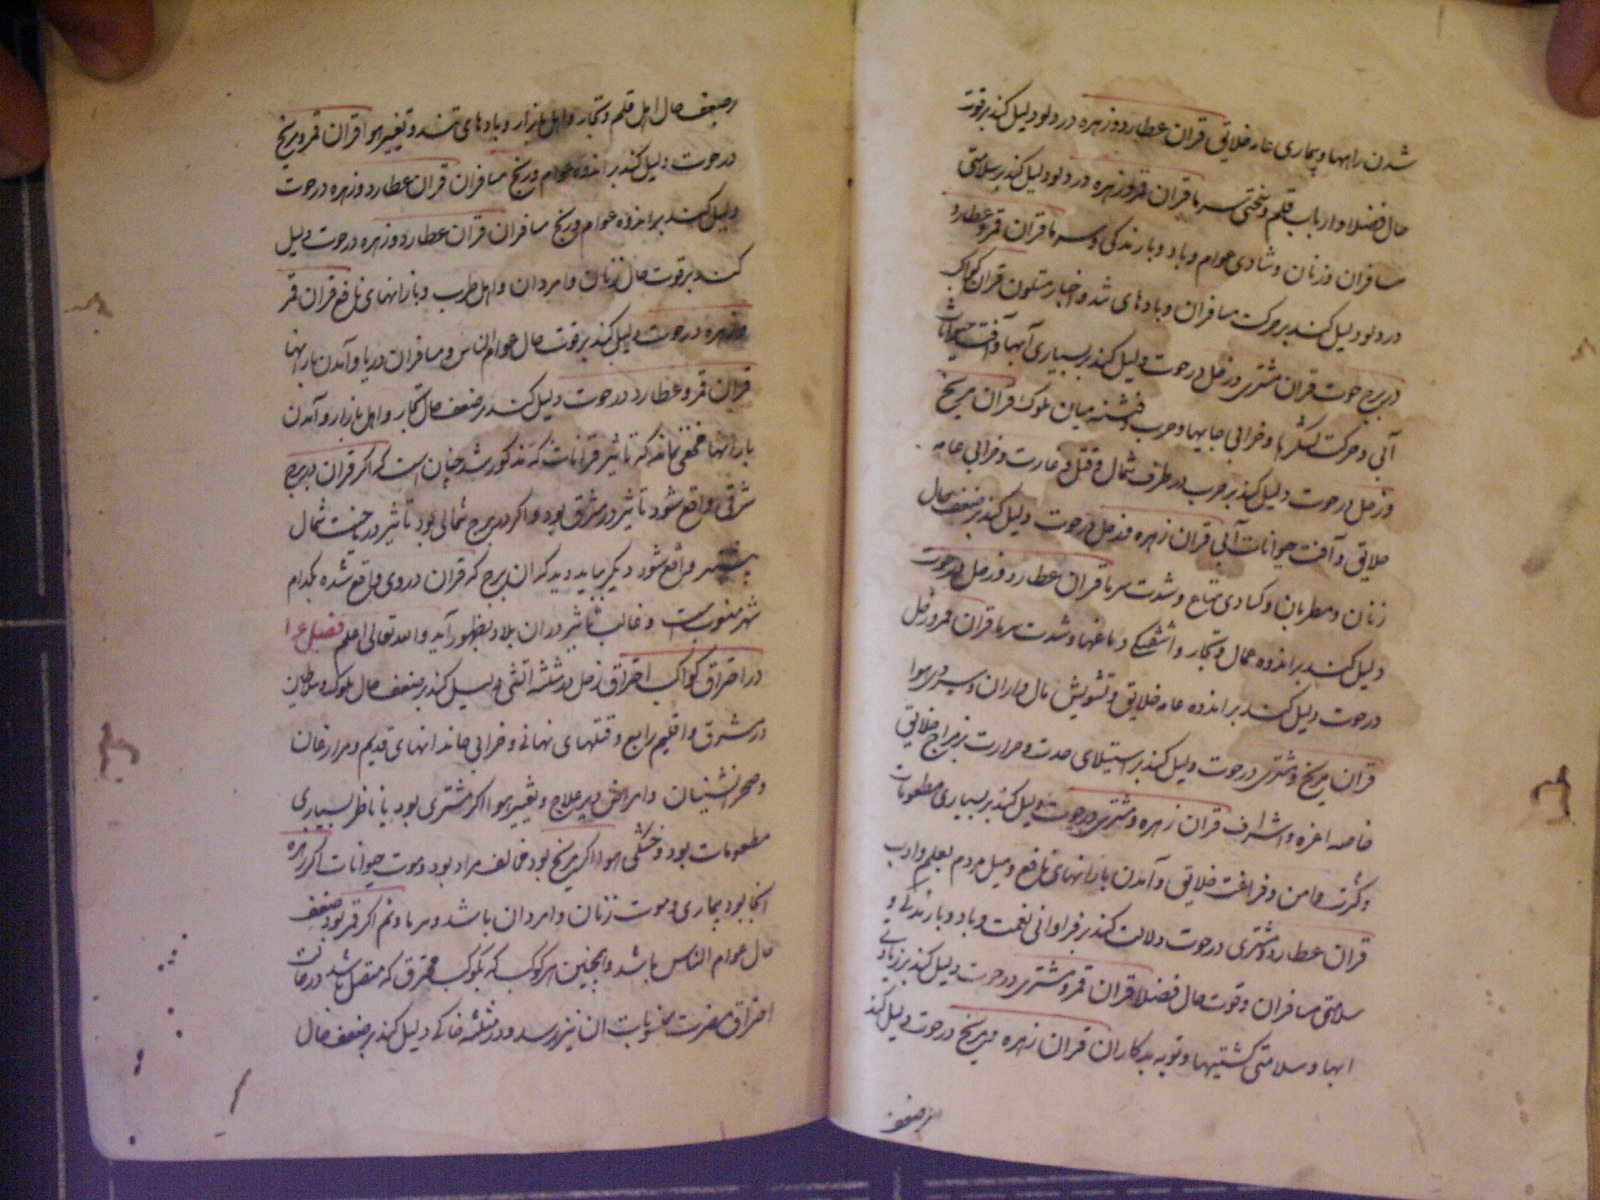 شدن راهها و بیماری عامه خلایق قران عطارد و زهره در دلو دلیل کند بر قوت
حال فضلا و ارباب قلم و سختی سرما قران قمر و زهره در دلو دلیل کند بر سلامتی
مسافران و زنان و شادی عوام و باد و بارندگی و سرما قران قمر و عطارد
در دلو دلیل کند بر حرکت مسافران و بادهای شد و اخبار متلون قران کواکب
در برج حوت قران مشتری و زحل در حوت دلیل کند بر بسیاری آبها و آفت حیوانات
آبی و حرکت لشکرها و خرابی جایها و حرب و فتنه میان ملوک قران مریخ
و زحل در حوت دلیل کند بر حرب در طرف شمال و قتل و غارت و خرابی عامه
خلایق و آفت حیوانات آبی قران زهره و زحل در حوت دلیل کند بر ضعف حال
زنان و مطربان و کسادی متاع و شدت سرما قران عطارد و زحل در حوت
دلیل کند بر اندوه عمال و تجار و آشفتگی دماغها و شدت سرما قران قمر و زحل
در حوت دلیل کند بر اندوه عامه خلایق و تشویش مال داران و سردی هوا
قران مریخ و مشتری در حوت دلیل کند بر استیلای حدت و حرارت بر مزاج خلایق
خاصه اعزه و اشراف قران زهره و مشتری در حوت دلیل کند بر بسیاری مطعومات
و کثرت و امن و فراغت خلایق و آمدن بارانهای نافع و میل مردم بعلم و ادب
قران عطارد و مشتری در حوت دلالت کند بر فراوانی نعمت و باد و بارندگی و
سلامتی مسافران و قوت حال فضلا قران قمر و مشتری در حوت دلیل کند بر زیادتی
ابها و سلامتی کشتیها و توبه بدکاران قران زهره و مریخ در حوت دلیل کند
بر ضعف
بر ضعف حال اهل قلم و تجار و اهل بازار و بادهای تند و تغییر هوا قران قمر و مریخ
در حوت دلیل کند بر اندوه عوام و رنج مسافران قران عطارد و زهره در حوت
دلیل کند بر اندوه عوام و رنج مسافران قران عطارد و زهره در حوت دلیل
کند بر قوت حال زنان و امردان و اهل طرب و بارانهای نافع قران قمر
و زهره در حوت دلیل کند بر قوت حال عوام الناس و مسافران دریا و آمدن بارانها
قران قمر و عطارد در حوت دلیل کند بر ضعف حال تجار و اهل بازار و آمدن
بارانها مخفی نماند که تاثیر قرانات که مذکور شد چنان است که اگر قران در برج
شرقی واقع شود تاثیر در مشرق بود و اگر در برج شمالی بود تاثیر در جهت شمال
بیشتر واقع شود دیگر بباید دید که ان برج که قران در وی واقع شده بکدام
شهر منسوبست و غالب تاثیر در ان بلاد بظهور آید والله تعالی اعلم فصل
در احتراق کواکب احتراق زحل در مثلثه اتشی دلیل کند بر ضعف حال ملوک و سلاطین
در مشرق و اقلیم رابع و قتلهای نهانی و خرابی خاندانهای قدیم و مزارعان
و صحرانشینان و امراض دیر علاج و تغییر هوا اگر مشتری بود یا ناظر بسیاری
مطعومات بود و خشکی هوا اگر مریخ بود مخالف مراد بود و موت حیوانات اگر زهره
انجا بود بیماری و موت زنان و امردان باشد و سرما و نم اگر قمر بود ضعف
حال عوام الناس باشد و همچنین هر کوکب که بکوکب محترق که متصل باشد در حالت
احتراق مضرت منسوبات ان نیز رسد و در مثلثه خاکی دلیل کند بر ضعف حال